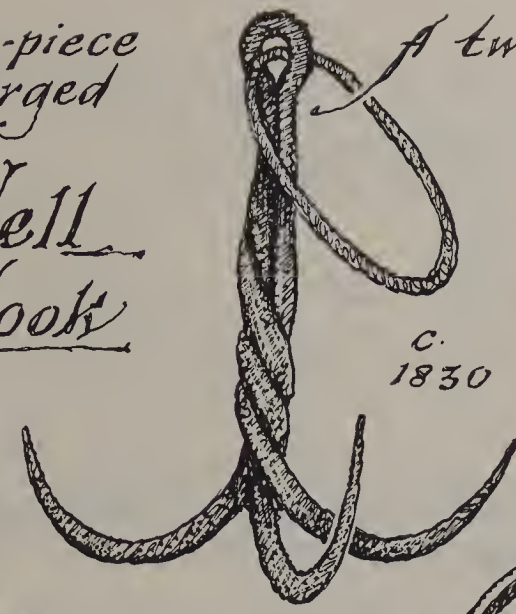 -piece
rged
ell
ook
A tw
c.
1830